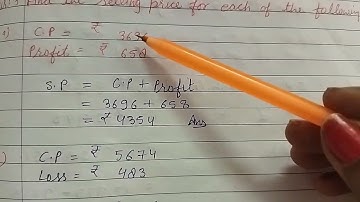 Find the selling price for each of the following
C.P = ₹ 3696
Profit = ₹ 658
S.P = C.P + Profit
= 3696 + 658
= ₹ 4354 Ans
) C.P = ₹ 5674
Loss = ₹ 483